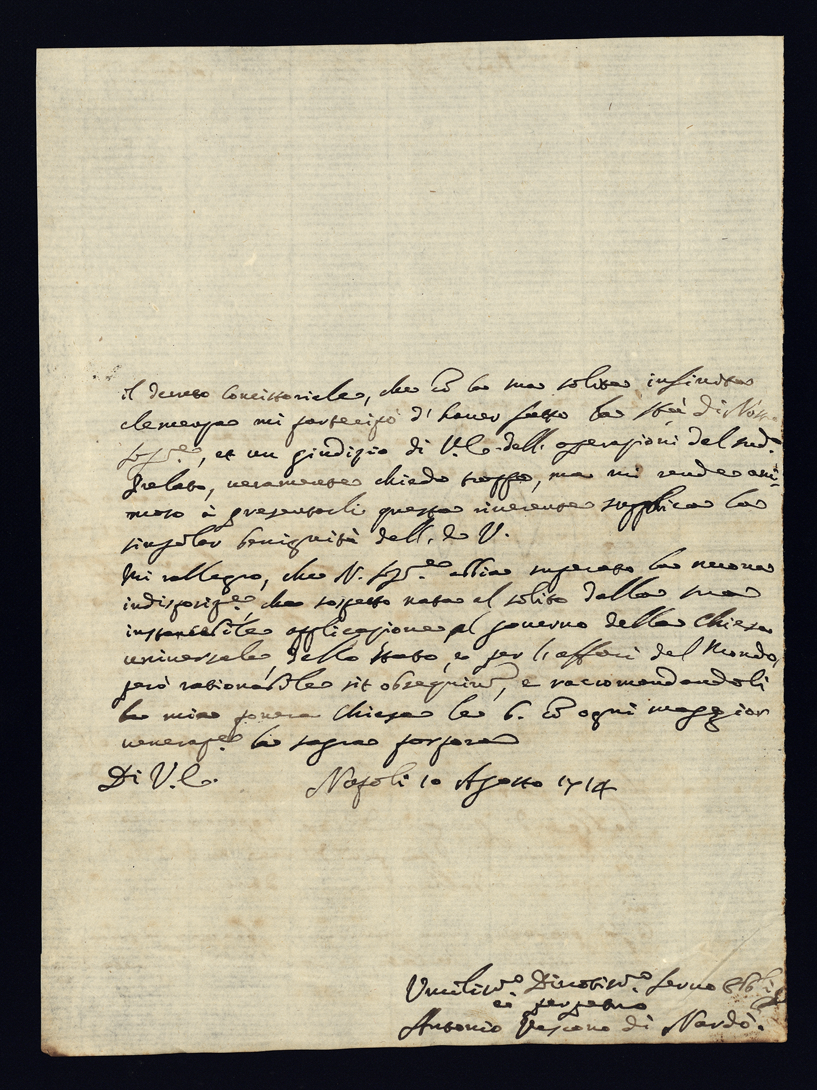 il decreto Concistoriale, che cō la sua solita infinita
clemenza mi partecipò d'haver fatto la Stà di Nos.
Sigre, et un giudizio di V.E. dell' operazioni del sud.o
Prelato, veramente chiedo troppo, ma mi rende ani-
moso à presentarli questa riverente supplica la
singolar benignità dell' E. V.
Mi rallegro, che N. Sigre abbia superato la nuova
indisposize. che sospetto nata al solito dalla sua
instancabile applicazione al governo della Chiesa
universale, dello stato, e per li affari del Mondo,
però rationabile sit obsequium, e raccomandandoli
la mia povera Chiesa le b. cō ogni maggior
veneraze. la sagra porpora
Di V.E. Napoli 10 Agosto 1714
Umiliss.o Divotiss.o Servo
et perpetuo
Antonio Vescovo di Nardò.